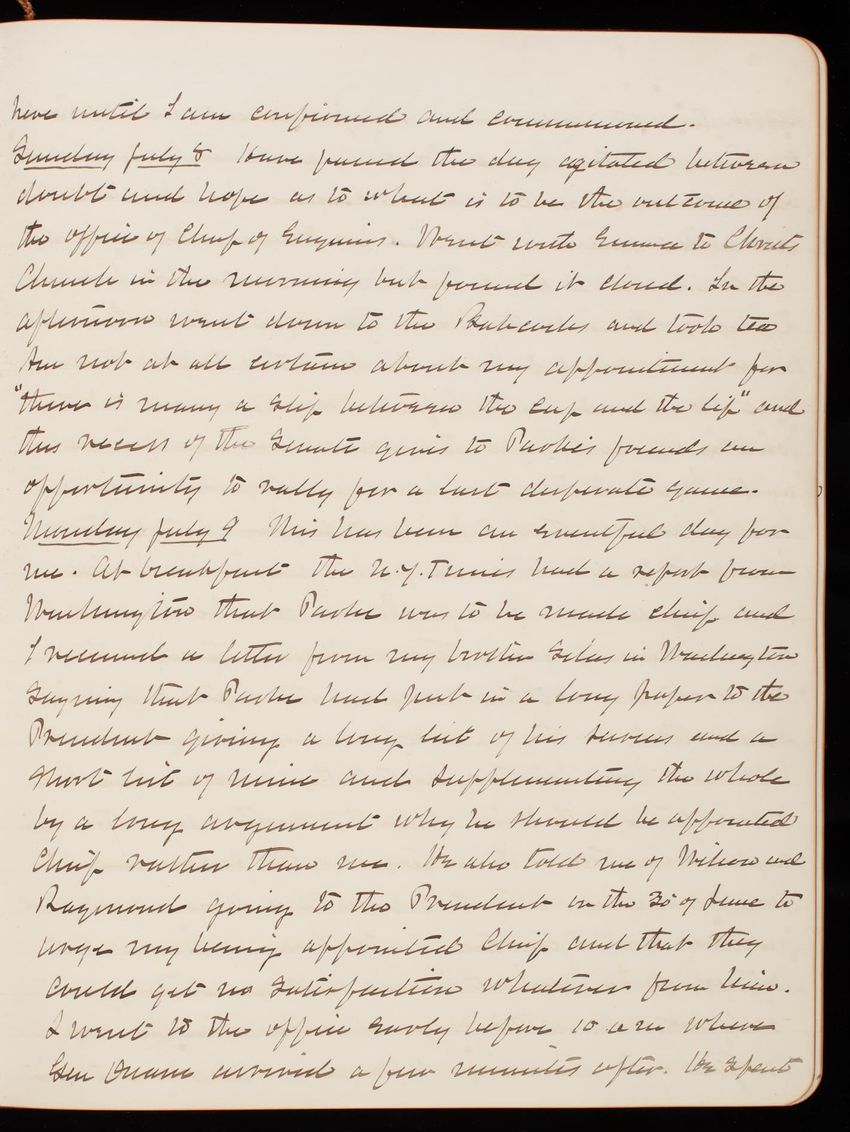 here until I am confirmed and commissioned.
Sunday July 8 Have passed the day agitated between
doubt and hope as to what is to be the outcome of
the office of Chief of Engineers. Went with Emma to Christs
Church in the morning but found it closed. In the
afternoon went down to the Babcocks and took tea
Am not at all certain about my appointment for
"there is many a slip between the cup and the lip" and
this recess of the Senate gives to Parke's friends an
opportunity to rally for a last desperate game.
Monday July 9 This has been an eventful day for
me. At breakfast the N.Y. Times had a report from
Washington that Parke was to be made chief and
I received a letter from my brother Silas in Washington
saying that Parke had put in a long paper to the
President giving a long list of his services and a
short list of mine and supplementing the whole
by a long argument why he should be appointed
Chief rather than me. He also told me of Wilson and
Raymond going to the President on the 30 of June to
urge my being appointed Chief and that they
could get no satisfaction whatever from him.
I went to the office early before 10 a m where
Gen Duane arrived a few minutes after. He spent